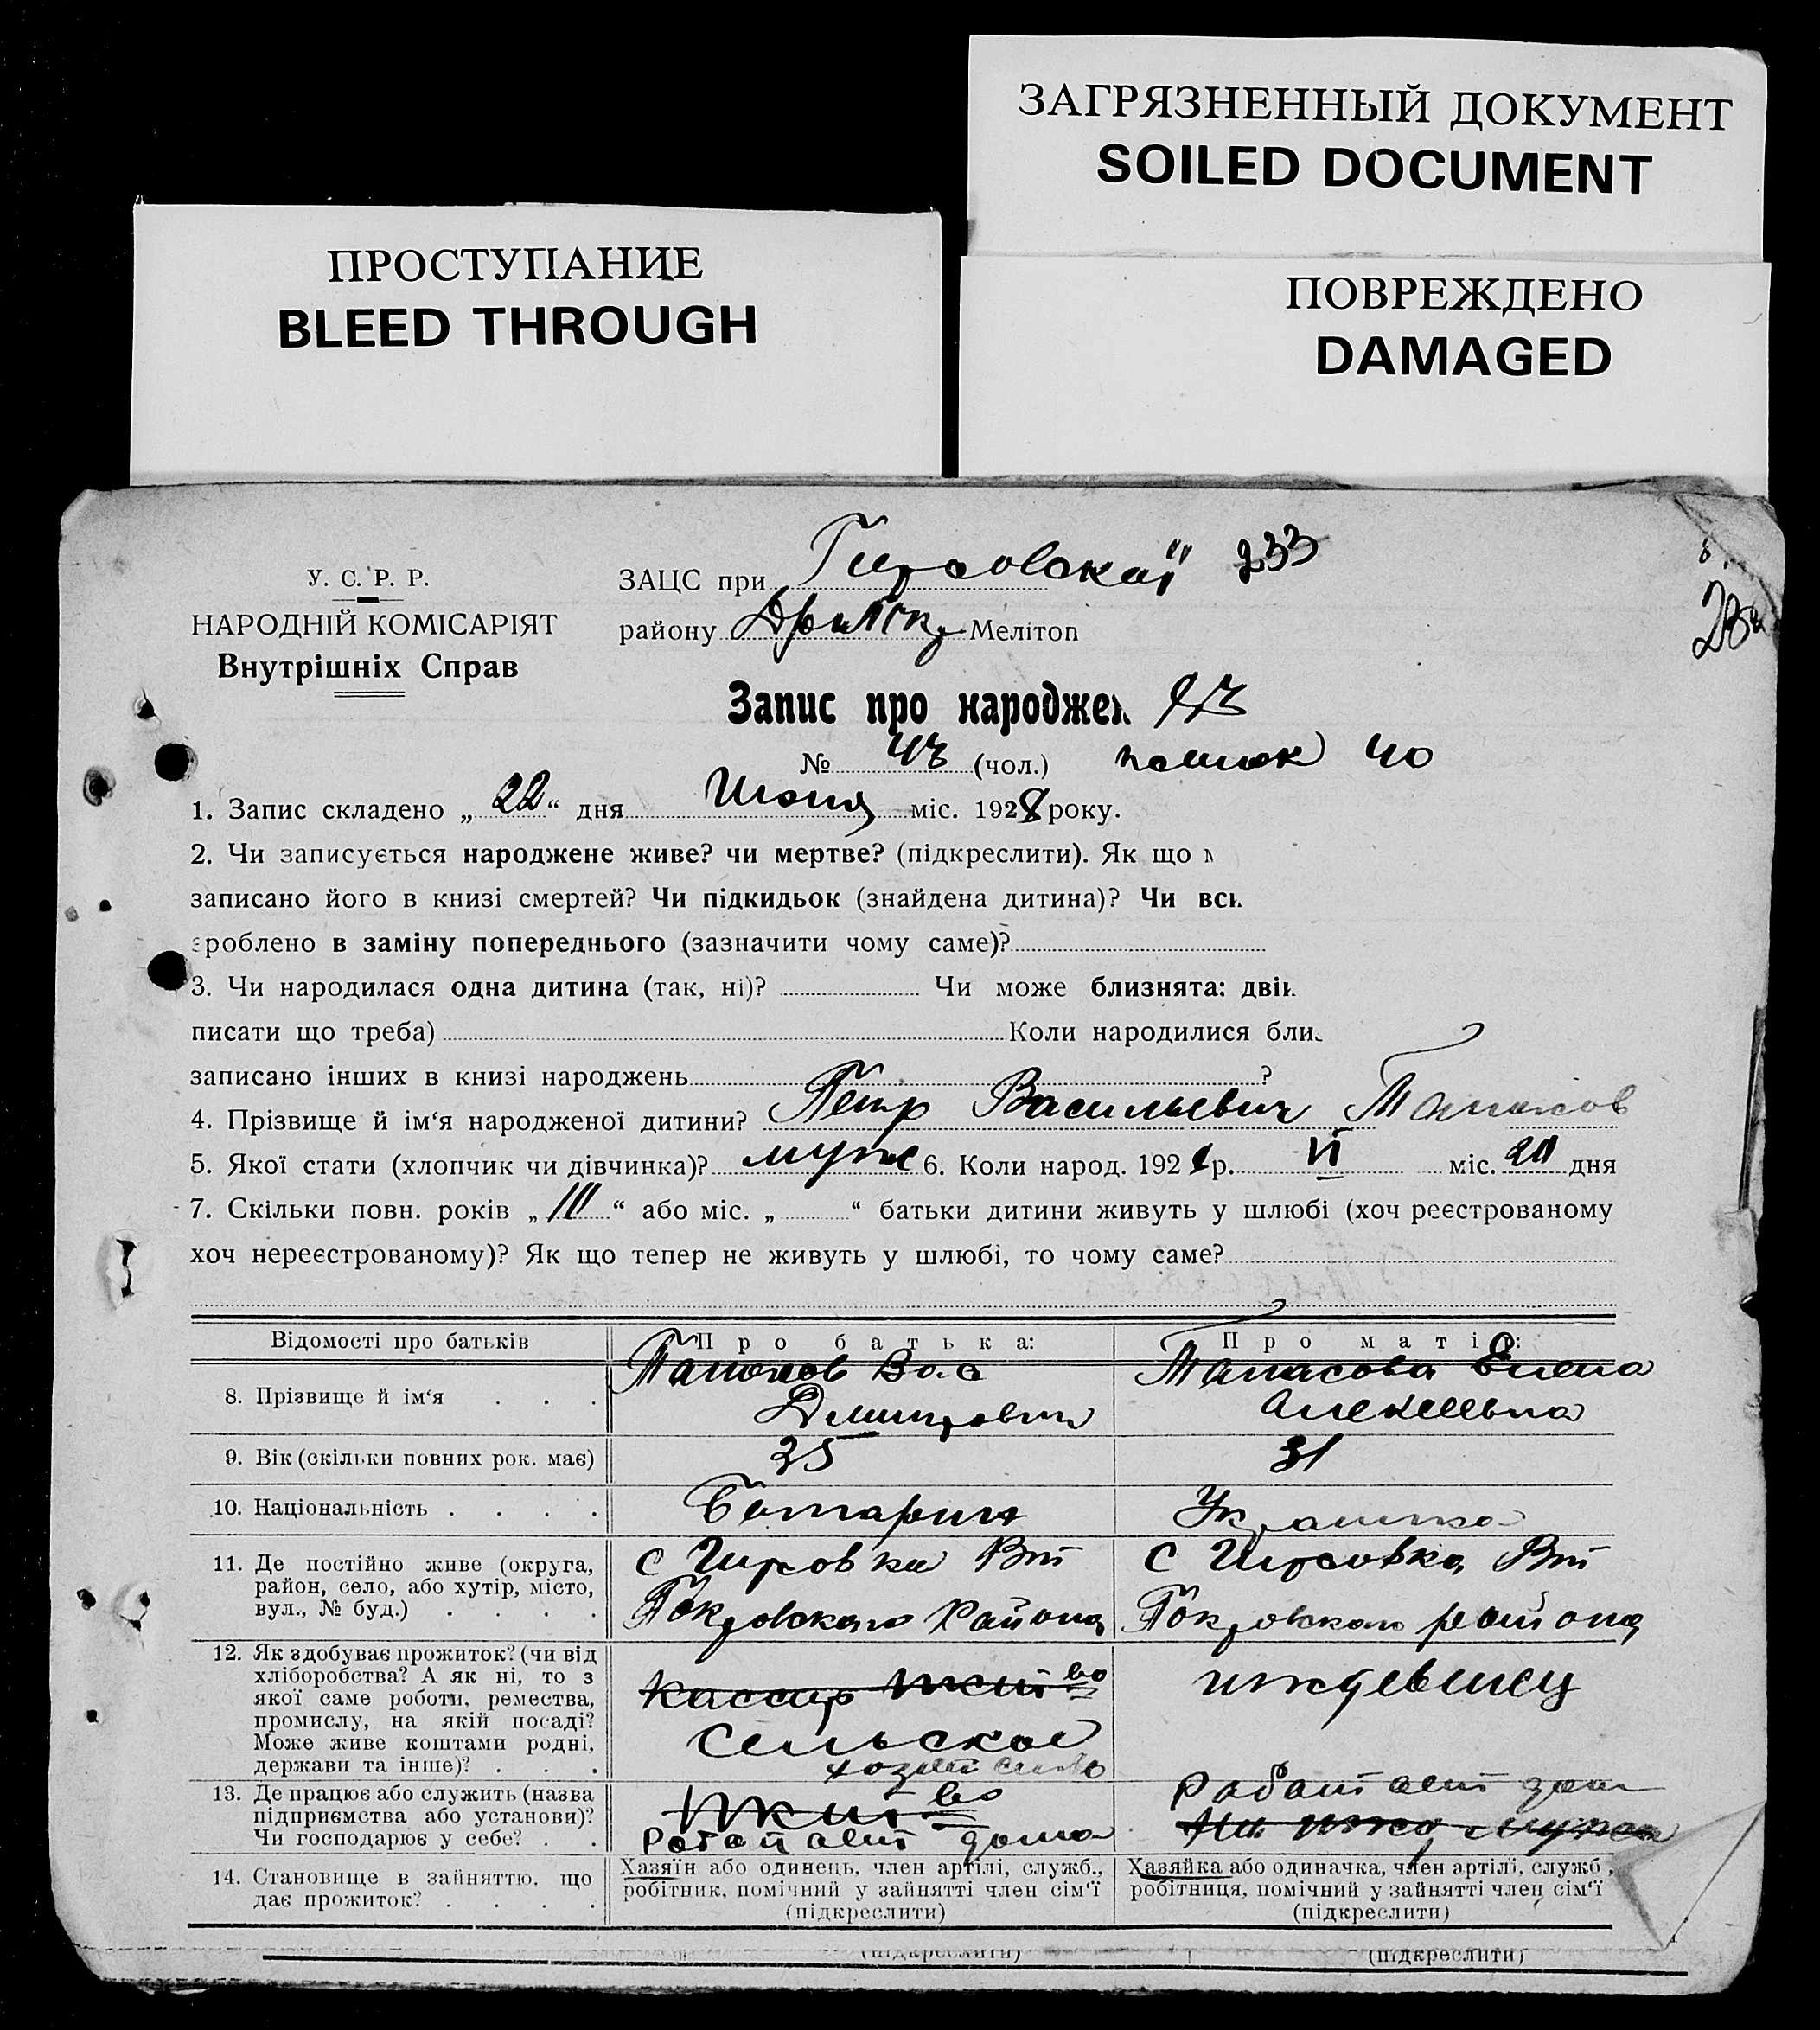 ЗАГРЯЗНЕННЫЙ ДОКУМЕНТ
SOILED DOCUMENT
ПРОСТУПАНИЕ
BLEED THROUGH
ПОВРЕЖДЕНО
DAMAGED
У. С. Р. Р.
НАРОДНІЙ КОМІСАРІЯТ
Внутрішніх Справ
ЗАЦС при 233
району Мелітоп
Запис про народжен
№ (чол.) 40
1. Запис складено „ 22 “ дня Июня міс. 1928 року.
2. Чи записується народжене живе? чи мертве? (підкреслити). Як що
записано його в книзі смертей? Чи підкидьок (знайдена дитина)? Чи
зроблено в заміну попереднього (зазначити чому саме)?
3. Чи народилася одна дитина (так, ні)? Чи може близнята:
писати що треба) Коли народилися
записано інших в книзі народжень ?
4. Прізвище й ім‘я народженої дитини? Петр Васильевич
5. Якої стати (хлопчик чи дівчинка)? муж 6. Коли народ. 192 р. VI міс. дня
7. Скільки повн. років „ “ або міс. „ “ батьки дитини живуть у шлюбі (хоч реєстрованому
хоч нереєстрованому)? Як що тепер не живуть у шлюбі, то чому саме?
Відомості про батьків Про батька: Про матір:
8. Прізвище й ім‘я . . .
Вас
Дмитрович
Елена
Алексеевна
9. Вік (скільки повних рок. має) 35 31
10. Національність . . . . Украинка
11. Де постійно живе (округа,
район, село, або хутір, місто,
вул., № буд.) . . . .
с Гирсовка
Покровского Района
с Гирсовка
Покровского района
12. Як здобуває прожиток? (чи від
хліборобства? А як ні, то з
якої саме роботи, ремества,
промислу, на якій посаді?
Може живе коштами родні,
держави та інше)? . . .
Кассир
Сельское
хозяйство
иждевенец
13. Де працює або служить (назва
підприємства або установи)?
Чи господарює у себе? . .
Работает дома
Работает дома
14. Становище в зайняттю, що
дає прожиток? . . . .
Хазяїн або одинець, член артілі, служб.,
робітник, помічний у зайнятті член сім‘ї
(підкреслити)
Хазяйка або одиначка, член артілі, служб.,
робітниця, помічний у зайнятті член сім‘ї
(підкреслити)
(підкреслити) (підкреслити)